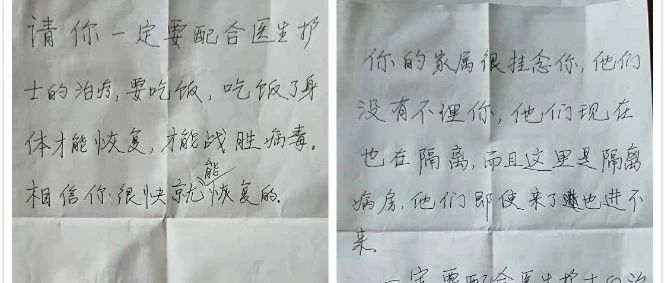 请你一定要配合医生护
士的治疗,要吃饭,吃饭了身
体才能恢复,才能战胜病毒。
相信你很快就能恢复的.
你的家属很挂念你,他们
没有不理你,他们现在
也在隔离,而且这里是隔离
病房,他们即使来了也进不
来.
一定要配合医生护士的治